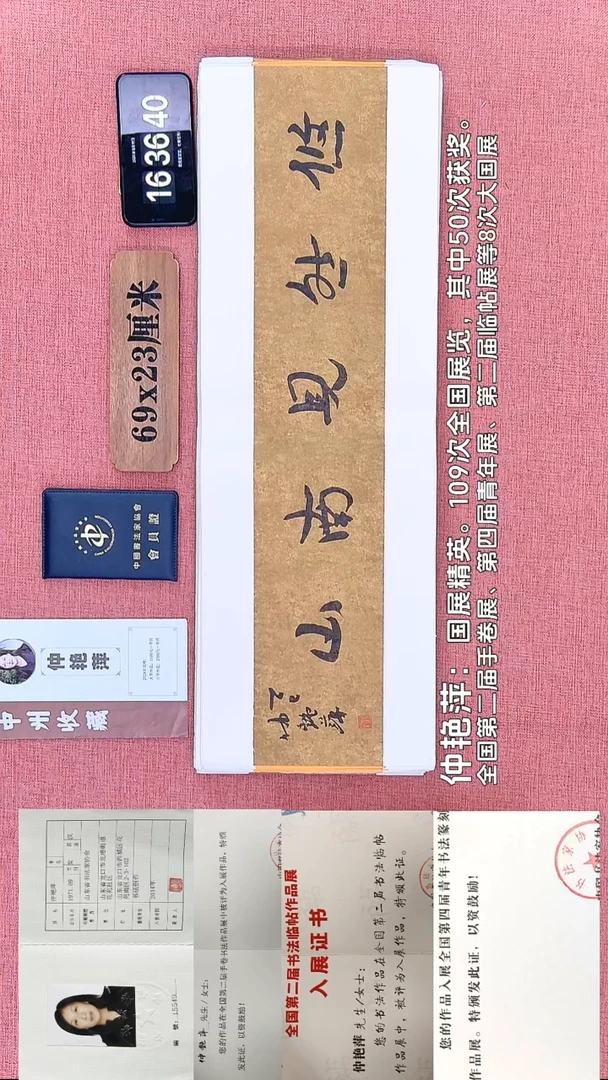 16 36 40
69x23厘米
中國書法家協會
會員證
仲艳萍
中州收藏
悠然見南山
仲艳萍：国展精英。109次全国展览，其中50次获奖。
全国第二届手卷展、第四届青年展、第二届临帖展等8次大国展
仲艳萍
1971.09
山东省书法家协会
仲艳萍 先生/女士：
您的作品在全国第二届手卷书法作品展中被评为入展作品，特颁
发此证，以资鼓励！
全国第二届书法临帖作品展
入展证书
仲艳萍 先生/女士：
您的书法作品在全国第二届书法临帖
作品展中，被评为入展作品，特颁此证。
您的作品入展全国第四届青年书法篆刻
作品展。特颁发此证，以资鼓励！